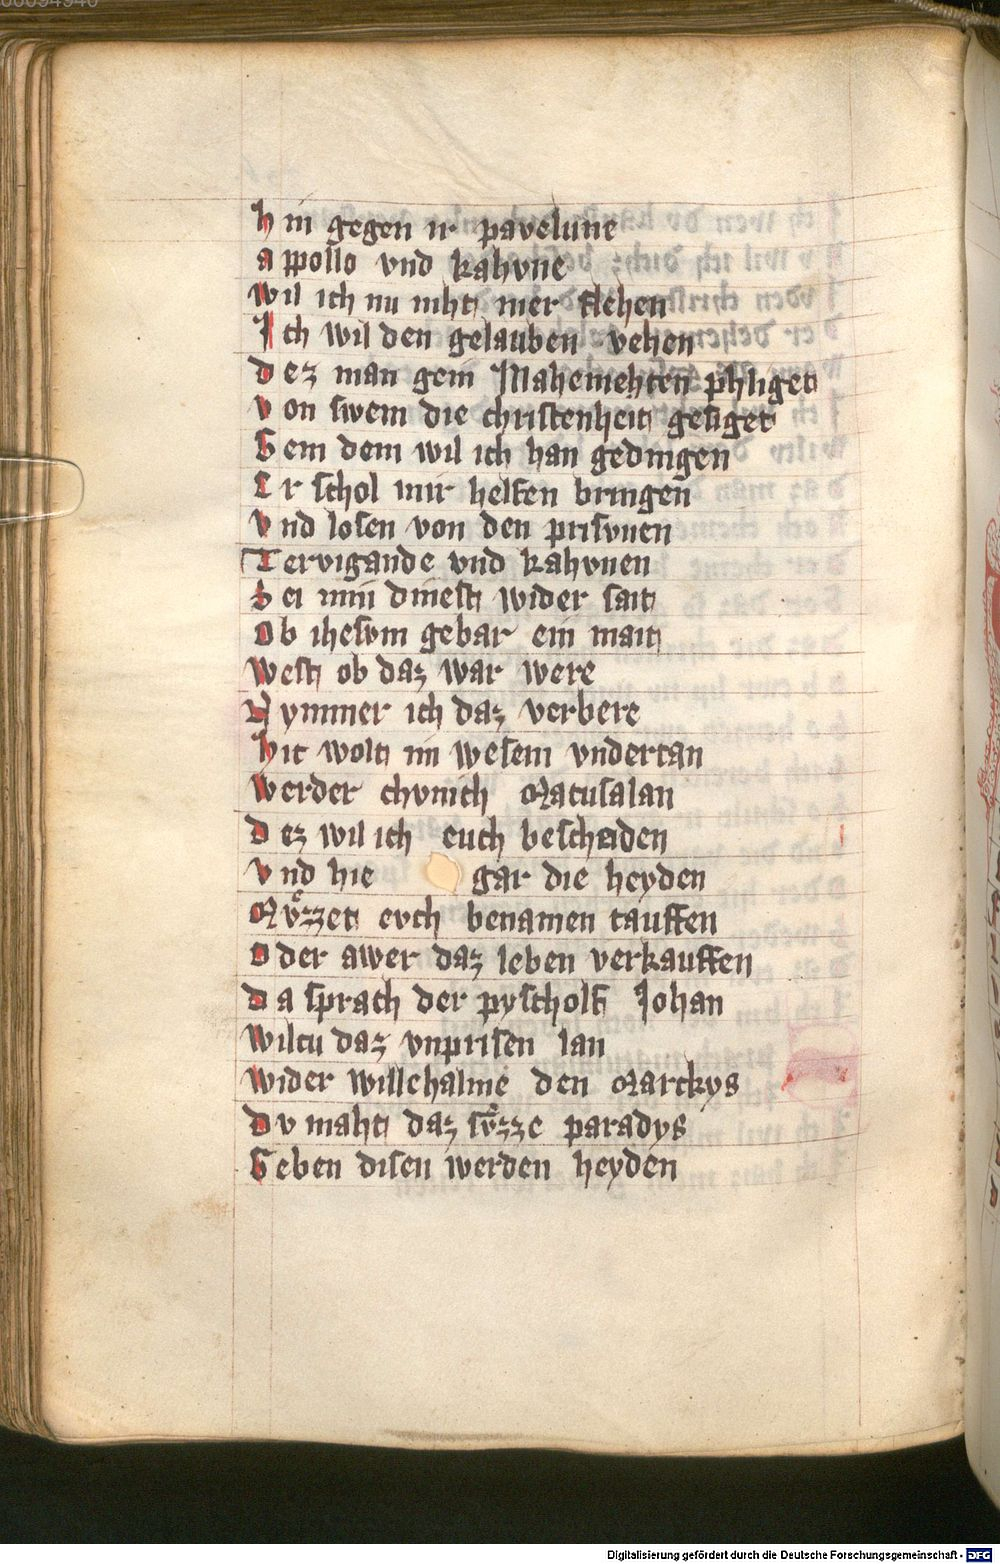 H in gegen ir pavelune
a ppollo vnd kahvne
Wil ich nu niht mer flehen
I ch wil den gelauben vehen
d ez man gein Mahemehten phliget
v on swem die christenheit gesiget
G em dem wil ich han gedingen
E r schol mir helfen bringen
v nd losen von den prisvnen
T ervigande vnd kahvnen
S ei min dinest wider sait
O b ihesvm gebar ein mait
West ob daz war were
N ymmer ich daz verbere
Hit wolt im wesem vndertan
Werder chvnich Matusalan
D ez wil ich euch bescheiden
v nd hie gar die heyden
Mvͦzzet evch benamen tauffen
O der awer daz leben verkauffen
D a sprach der pyscholf Johan
Wiltu daz vnprisen lan
Wider willehalme den Marckys
D v maht daz svͦzze paradys
G eben disen werden heyden
Digitalisierung gefördert durch die Deutsche Forschungsgemeinschaft - DFG